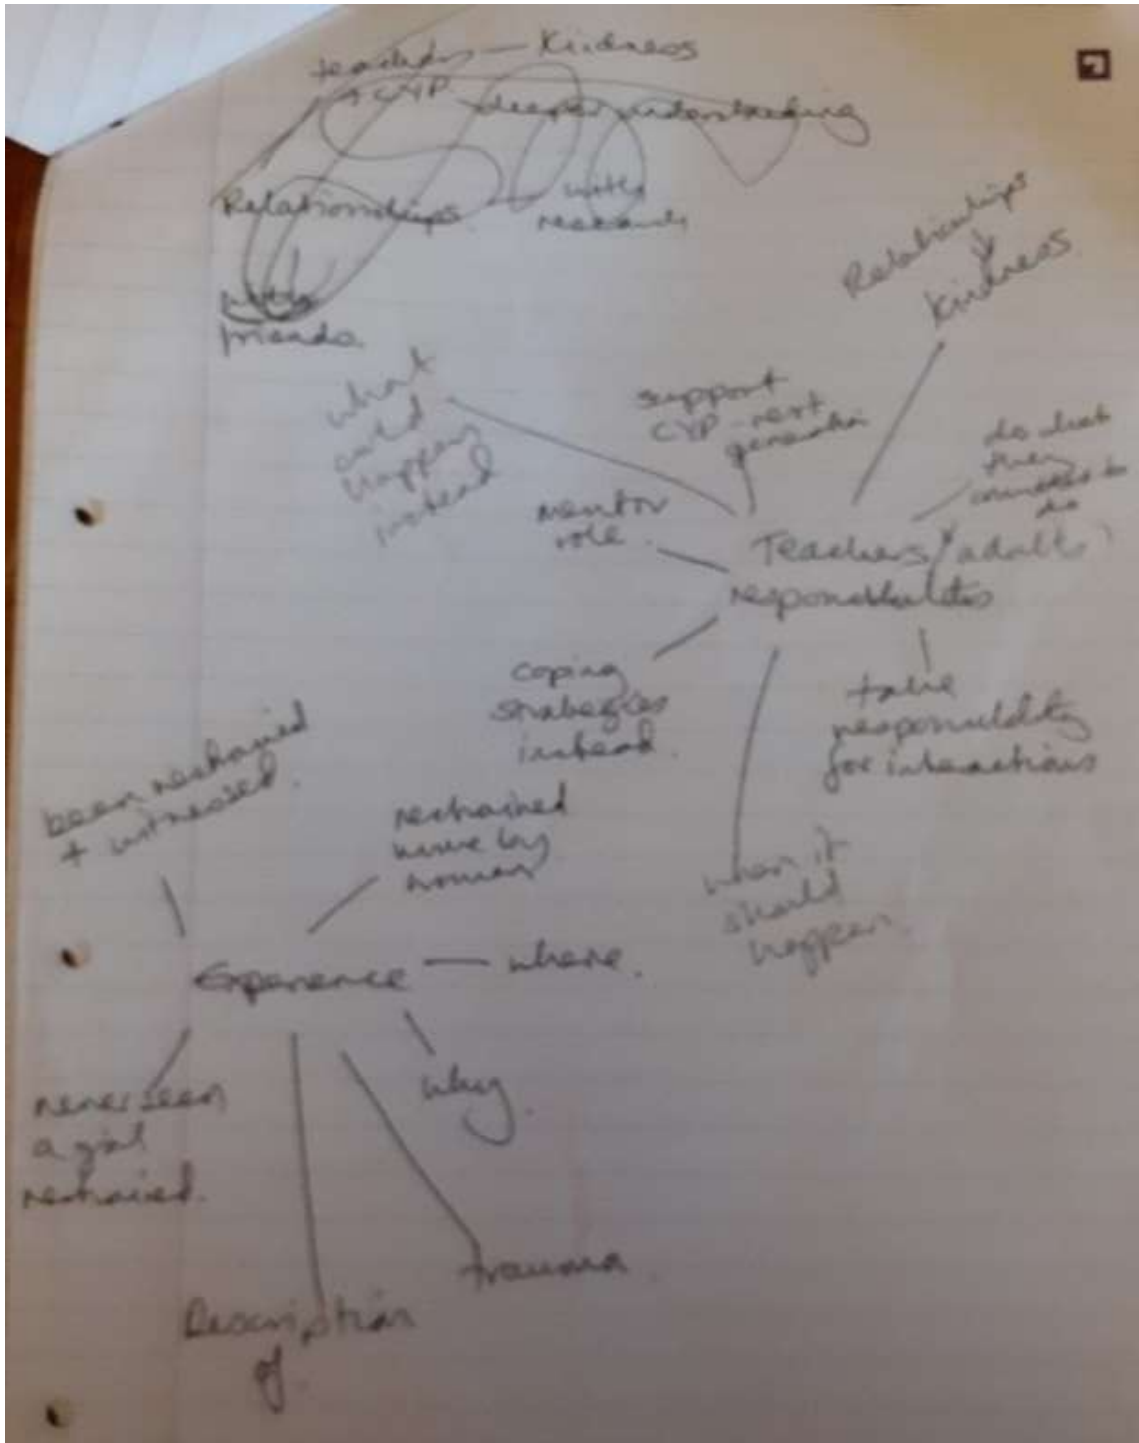 teachers — Kindness
+ CYP deeper understanding
Relationships — with
research
with
friends.
Relationships
Kindness
what
could
happen
instead
support
CYP - next
generation
do what
they
do
mentor
role.
Teachers / adults
responsibilities
coping
strategies
instead.
take
responsibility
for interactions
when it
should
happen.
been restrained
+ witnessed.
restrained
more by
woman
Experience — where.
why.
never seen
a girl
restrained.
trauma.
Description
of.